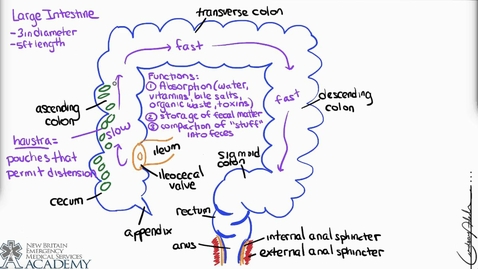 Large Intestine
-3in diameter
-5ft length
transverse colon
fast
Functions:
① Absorption (water,
vitamins, bile salts,
organic waste, toxins)
② storage of fecal matter
③ compaction of "stuff"
into feces
ascending
colon
fast
descending
colon
slow
haustra=
pouches that
permit distension
ileum
ileocecal
valve
sigmoid
colon
cecum
appendix
rectum
anus
internal anal sphincter
external anal sphincter
NEW BRITAIN
EMERGENCY
MEDICAL SERVICES
ACADEMY